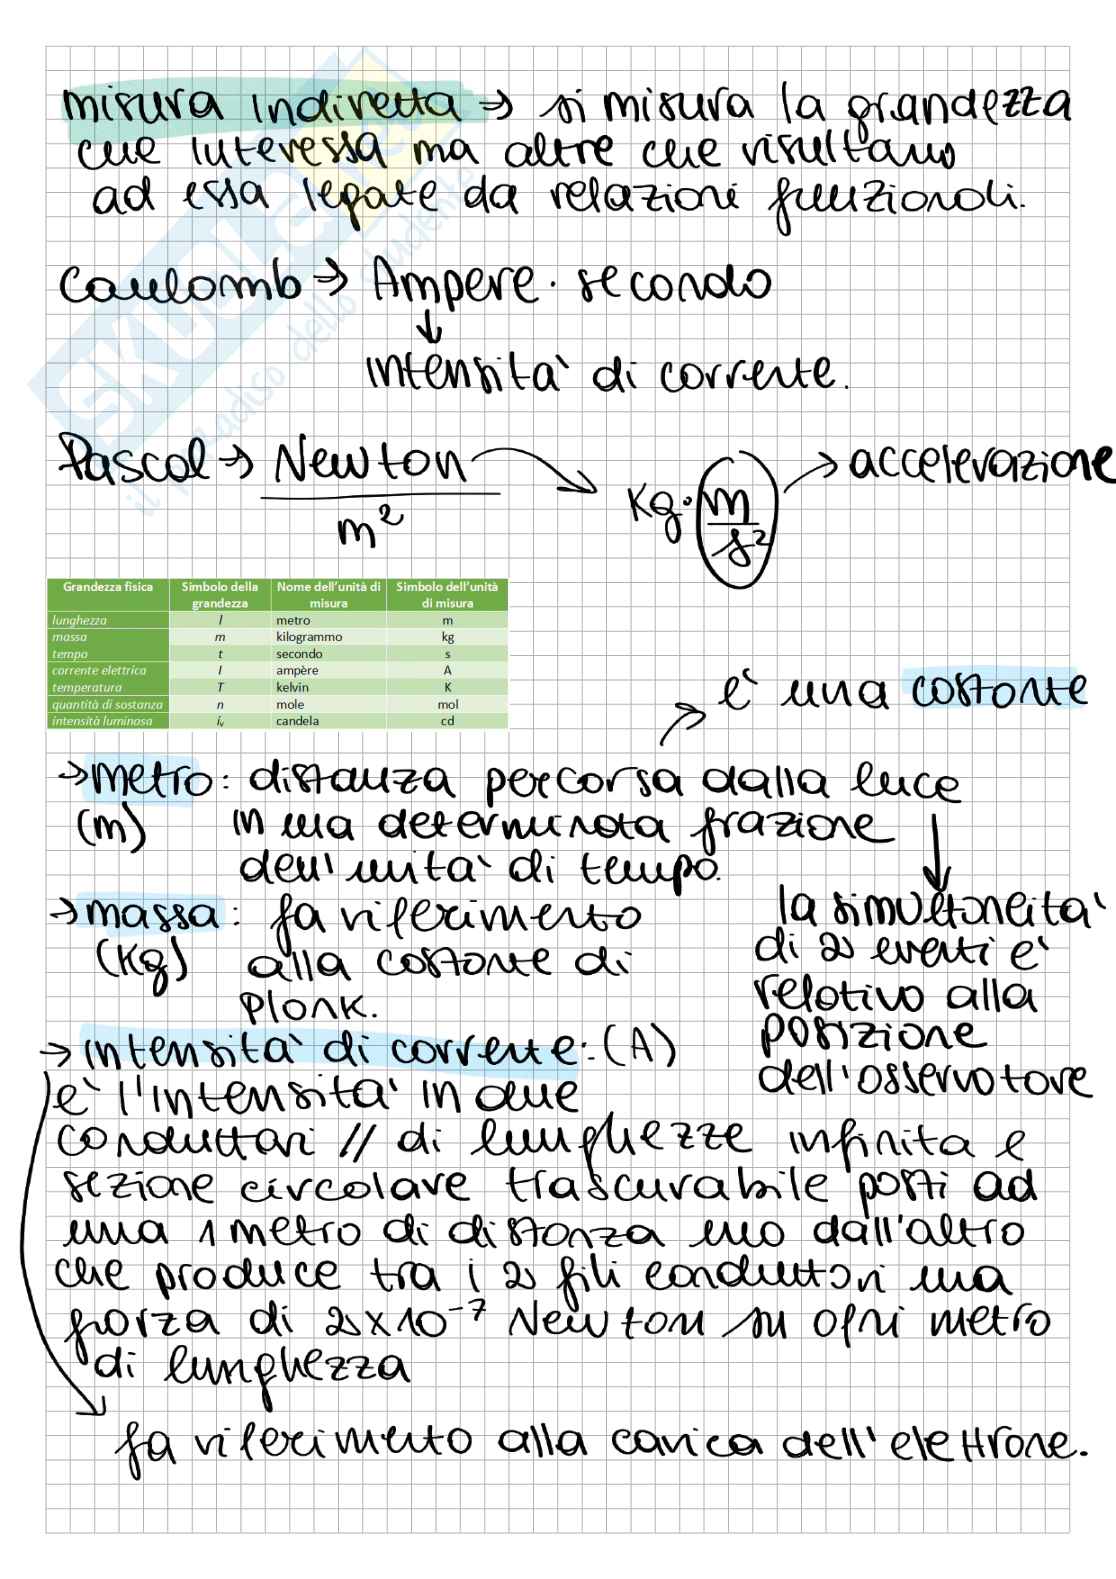 misura indiretta → si misura la grandezza
che interessa ma altre che risultano
ad essa legate da relazioni funzionali.
Coulomb → Ampere · secondo
↓
intensità di corrente.
Pascal → Newton
m²
Kg · m
s²
→ accelerazione
Grandezza fisica | Simbolo della grandezza | Nome dell'unità di misura | Simbolo dell'unità di misura
lunghezza | l | metro | m
massa | m | kilogrammo | kg
tempo | t | secondo | s
corrente elettrica | I | ampère | A
temperatura | T | kelvin | K
quantità di sostanza | n | mole | mol
intensità luminosa | iᵥ | candela | cd
è una costante
→ metro: distanza percorsa dalla luce
(m) in una determinata frazione
dell'unità di tempo.
→ massa: fa riferimento
(Kg) alla costante di
Plank.
la simultaneità
di 2 eventi è
relativo alla
posizione
dell'osservatore
→ intensità di corrente: (A)
è l'intensità in due
conduttori // di lunghezze infinita e
sezione circolare trascurabile posti ad
una 1 metro di distanza uno dall'altro
che produce tra i 2 fili conduttori una
forza di 2x10⁻⁷ Newton su ogni metro
di lunghezza
fa riferimento alla carica dell'elettrone.
SKUOLA.net
il paradiso dello studente